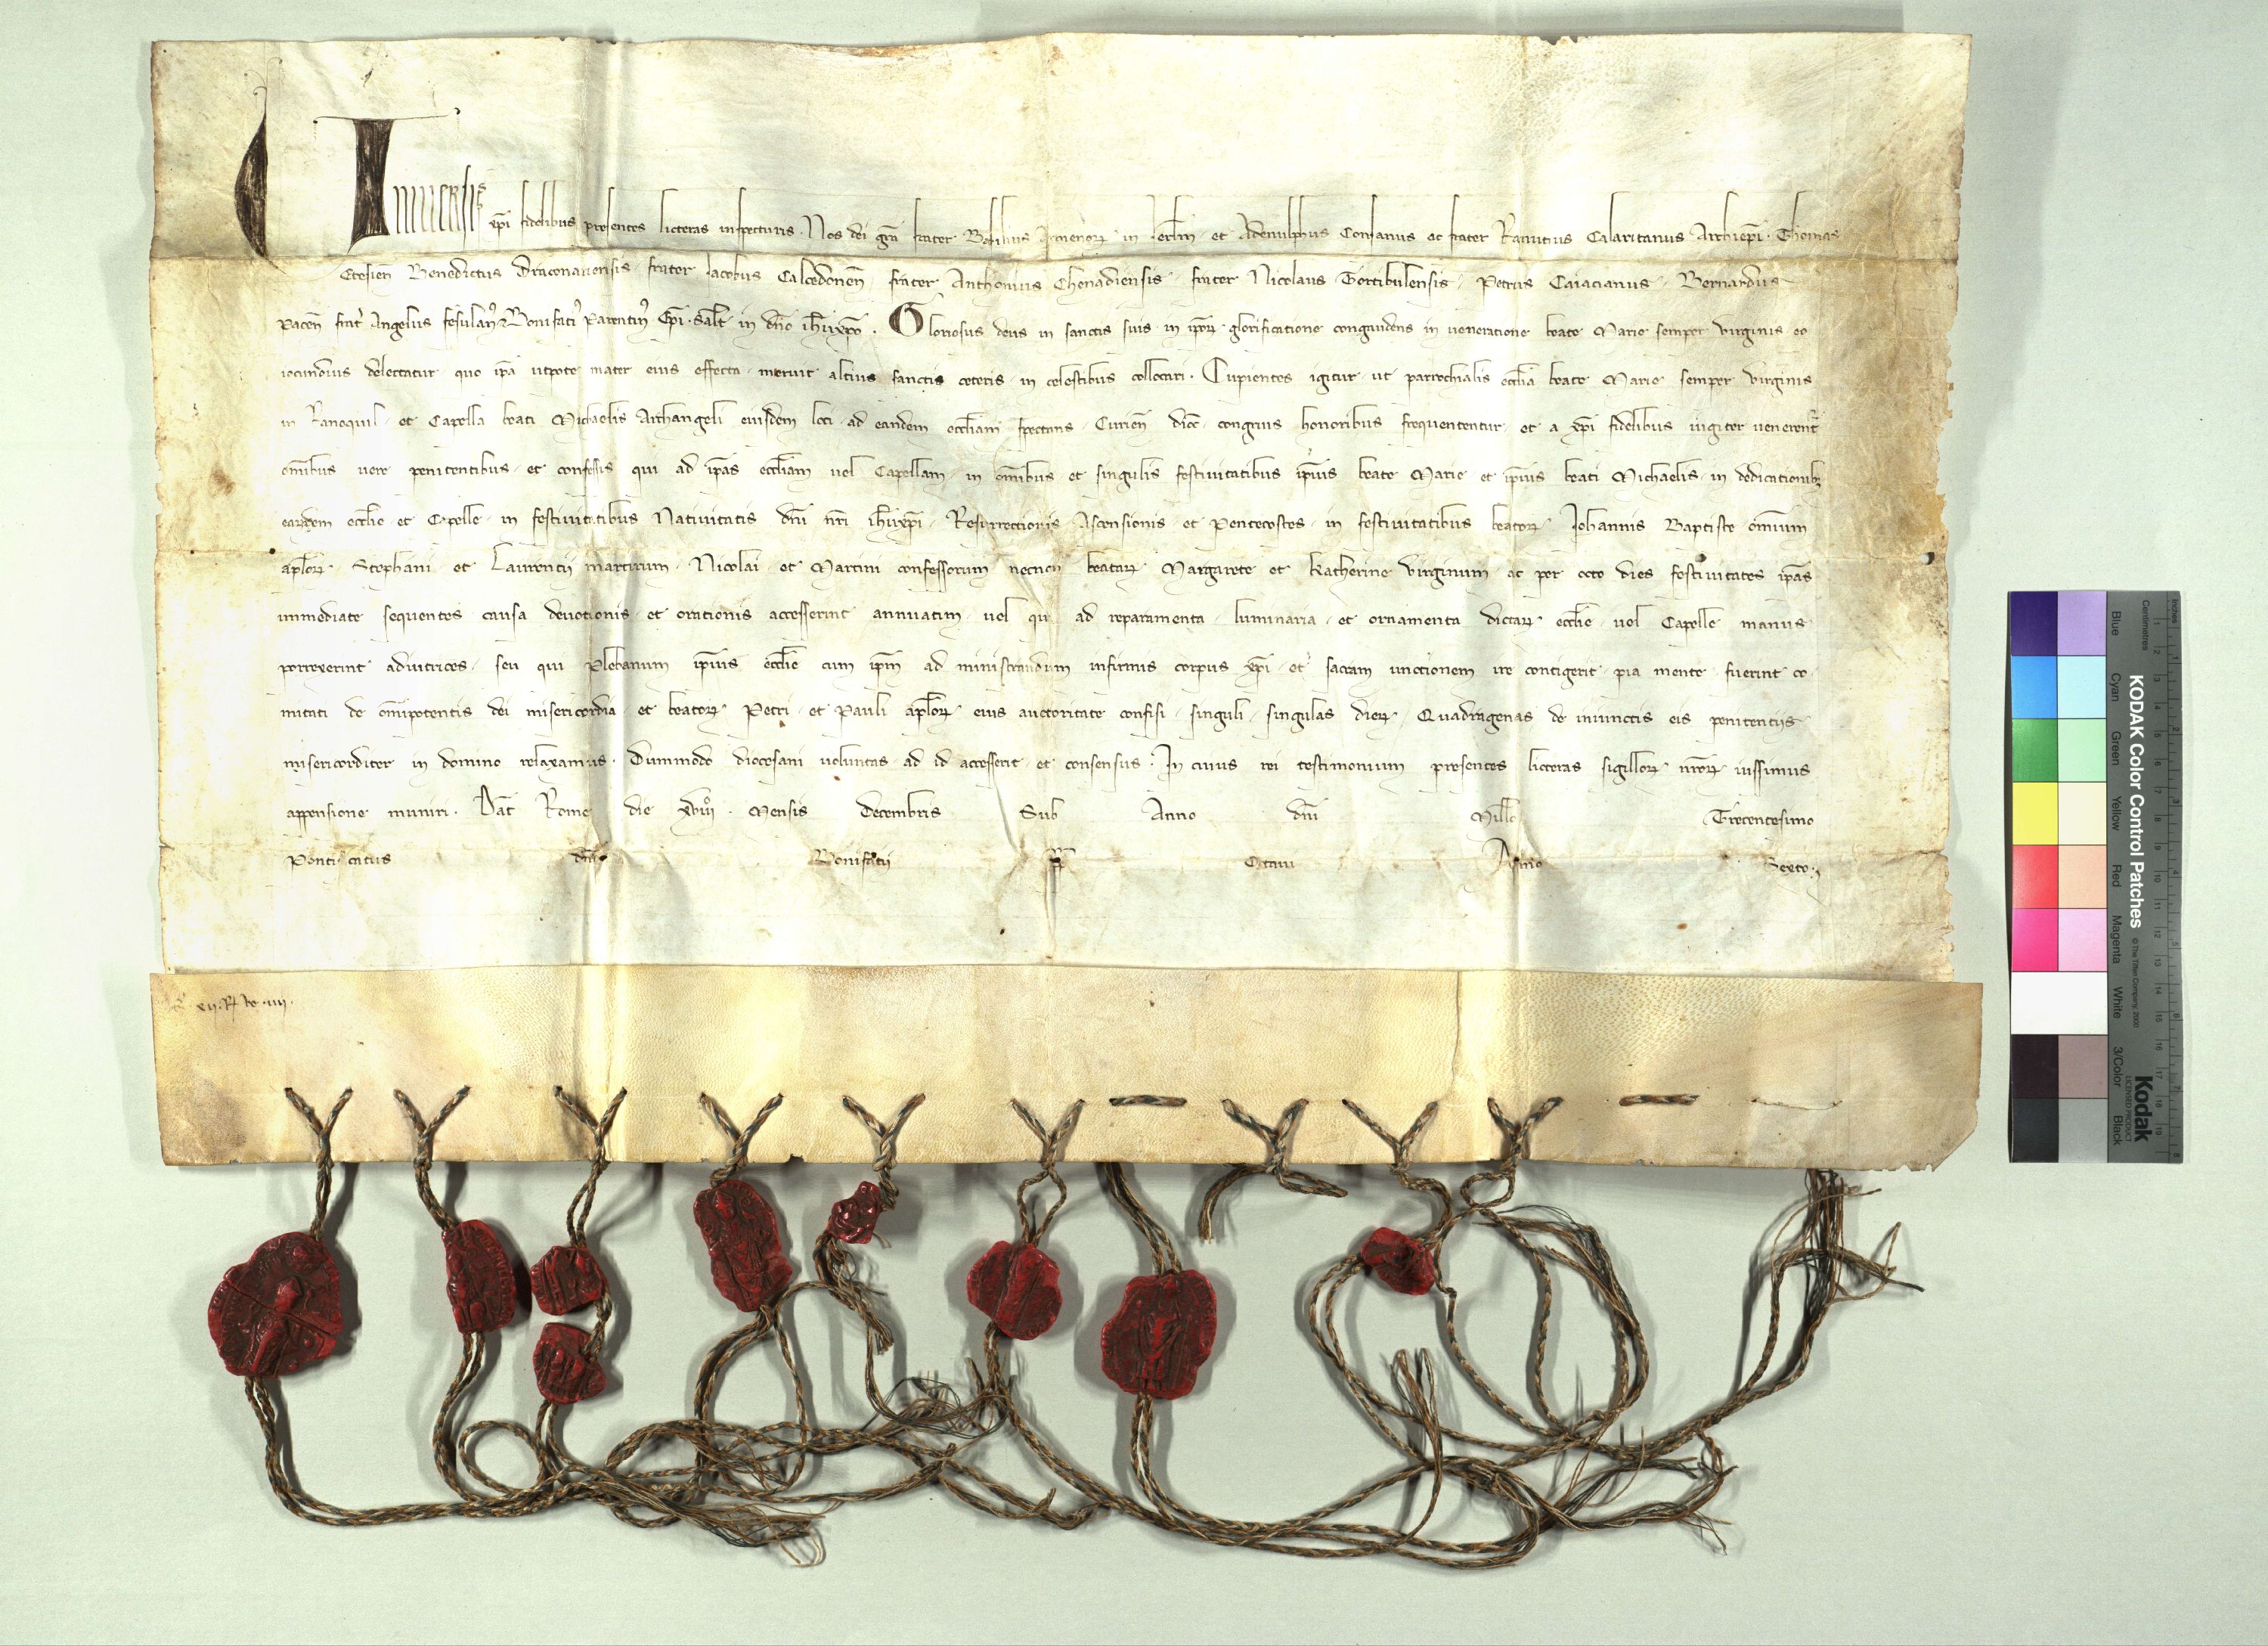 Universis xpi fidelibus presentes licteras inspecturis. Nos dei gra frater Basilius Armenorꝝ in Ierlm et Adenulphus Consanus ac frater Ranutius Calaritanus Archiepi. Thomas
Ecesien Benedictus Draconariensis. frater Iacobus Calcedonen. frater Anthonius Chenadiensis. frater Nicolaus Tortibulensis. Petrus Caiacianus. Bernardus
pacen frat Angelus fesulan Bonifati Parentin Epi. salt in dno ihuxpo. Gloriosus deus in sanctis suis in ipoꝝ glorificatione congaudens in ueneratione beate Marie semper virginis eo
iocundius delectatur quo ipa utpote mater eius effecta meruit altius sanctis ceteris in celestibus collocari. Cupientes igitur ut parrochialis ecclia beate Marie semper virginis
in Ranequil et Capella beati Michaelis Archangeli eiusdem loci ad eandem eccliam spectans Curien dioc congruis honoribus frequententur et a xpi fidelibus iugiter uenerent
omnibus uere penitentibus et confessis qui ad ipas eccliam uel Capellam in omnibus et singulis festiuitatibus ipius beate Marie et ipius beati Michaelis in dedicationibꝫ
earundem ecclie et Capelle in festiuitatibus Natiuitatis dni nri ihuxpi. Resurrectionis Ascensionis et Pentecostes in festiuitatibus beatoꝝ Iohannis Baptiste omnium
aploꝝ Stephani et Laurentij martirum Nicolai et Martini confessorum necnon beataꝝ Margarete et Katherine virginum ac per octo dies festiuitates ipas
immediate sequentes causa deuotionis et orationis accesserint annuatim uel qui ad reparamenta luminaria et ornamenta dictaꝝ ecclie uel Capelle manus
porrexerint adiutrices. seu qui Plebanum ipius ecclie cum ipm ad ministrandum infirmis corpus xpi et sacram unctionem ire contigerit pia mente fuerint co
mitati de omipotentis dei misericordia et beatoꝝ Petri et Pauli aploꝝ eius auctoritate confisi singuli singulas dieꝝ Quadragenas de iniunctis eis penitentijs
misericorditer in domino relaxamus. Dummodo diocesani uoluntas ad id accesserit et consensus. In cuius rei testimonium presentes licteras sigilloꝝ nroꝝ iussimus
appensione muniri. Dat Rome die xviii. Mensis Decembris Sub Anno dni Millo Trecentesimo
Pontificatus dni Bonifatij pp Octaui Anno Sexto.
KODAK Color Control Patches
© The Tiffen Company, 2000
Kodak
LICENSED PRODUCT
Inches
Centimetres
Blue
Cyan
Green
Yellow
Red
Magenta
White
3/Color
Black